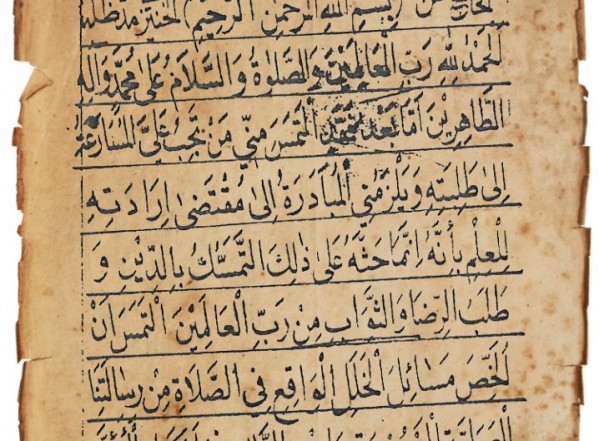 بِسْمِ اللهِ الرَّحْمٰنِ الرَّحِيْمِ
اَلْحَمْدُ لِلّٰهِ رَبِّ الْعَالَمِيْنَ وَالصَّلٰوةُ وَالسَّلَامُ عَلٰى مُحَمَّدٍ وَاٰلِهِ
الطَّاهِرِيْنَ اَمَّا بَعْدُ فَقَدِ الْتَمَسَ مِنِّي مَنْ تَجِبُ عَلَيَّ الْمُسَارَعَةُ
اِلىٰ طَلِبَتِهِ وَيَلْزَمُنِي الْمُبَادَرَةُ اِلىٰ مُقْتَضىٰ اِرَادَتِهِ
لِلْعِلْمِ بِأَنَّهُ اِنَّمَا حَثَّهُ عَلىٰ ذٰلِكَ التَّمَسُّكُ بِالدِّيْنِ وَ
طَلَبُ الرِّضَا وَالثَّوَابِ مِنْ رَبِّ الْعَالَمِيْنَ الْتَمَسَ اَنْ
اُلَخِّصَ مَسَائِلَ الْخَلَلِ الْوَاقِعِ فِي الصَّلَاةِ مِنْ رِسَالَتِنَا